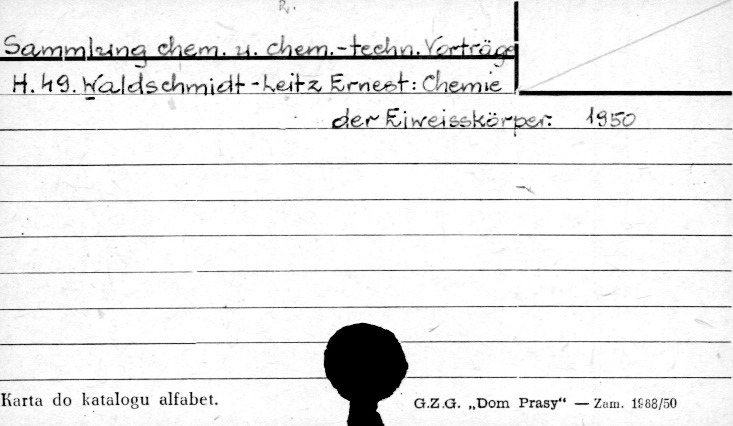 R.
Sammlung chem. u. chem.-techn. Vorträge
H. 49. Waldschmidt-Leitz Ernest: Chemie
der Eiweisskörper. 1950
Karta do katalogu alfabet.
G.Z.G. „Dom Prasy“ — Zam. 1988/50